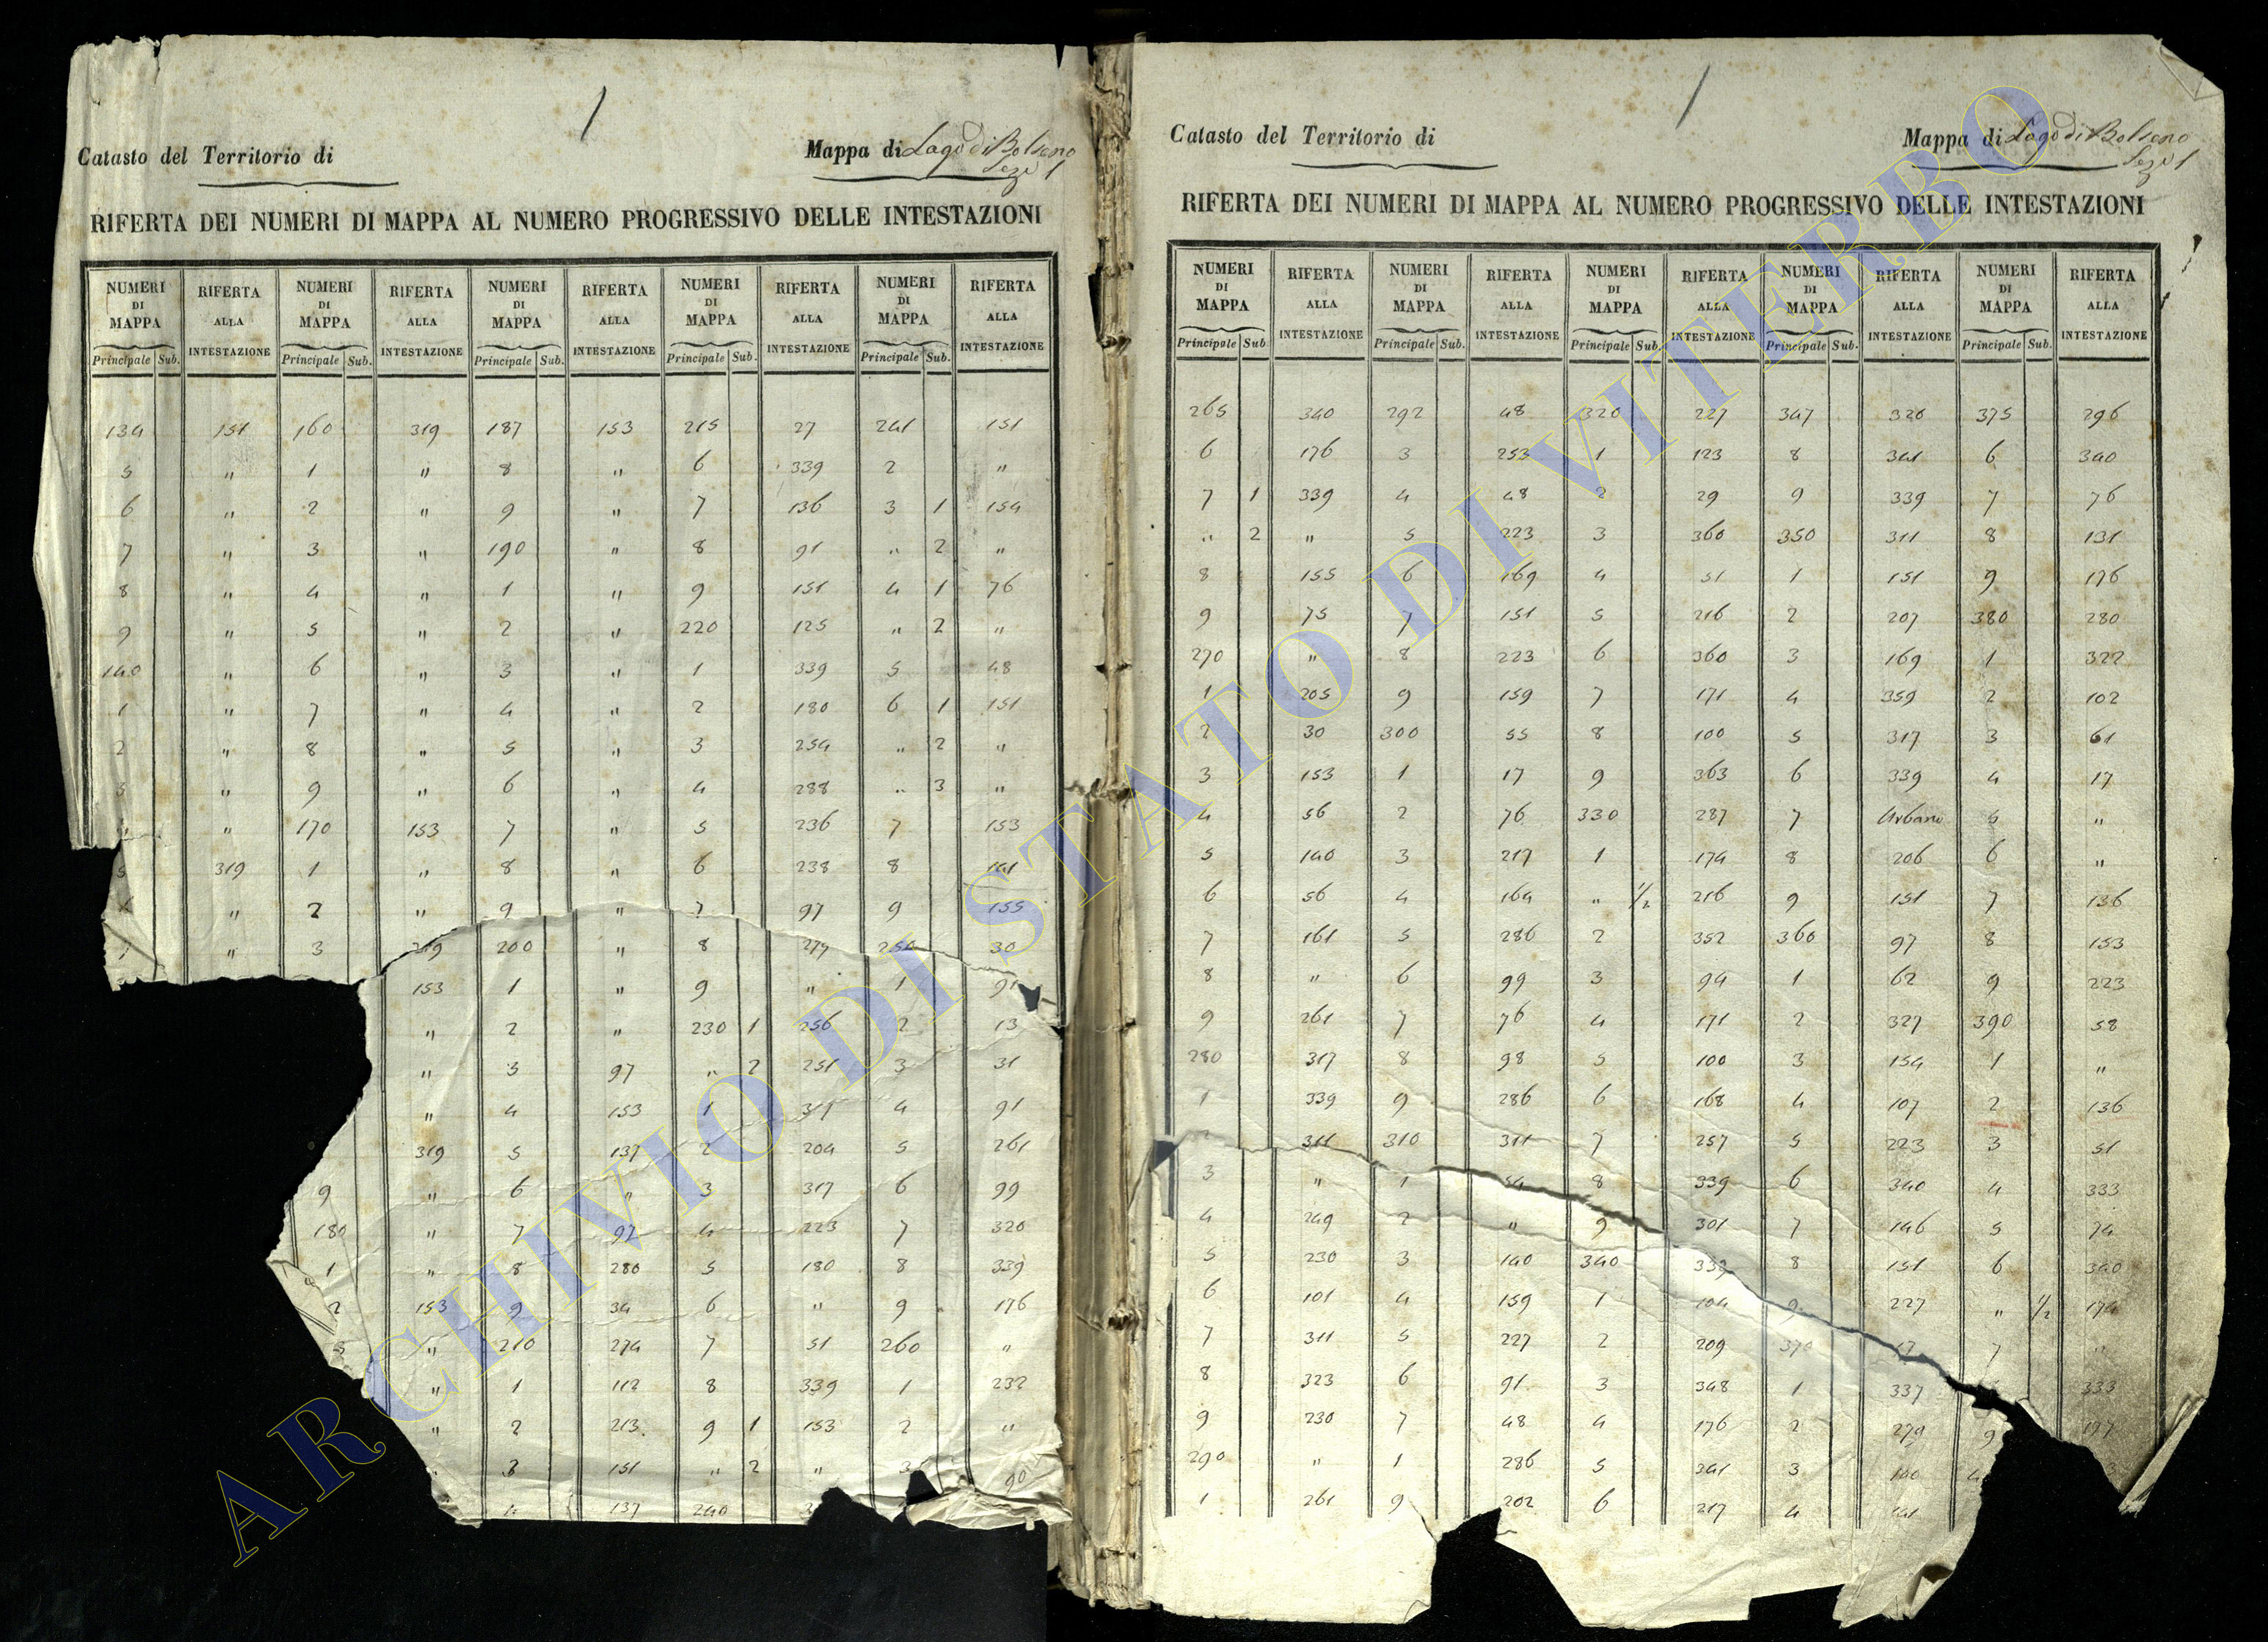 1
Catasto del Territorio di
Mappa di Lago di Bolseno
Sez.e 1
RIFERTA DEI NUMERI DI MAPPA AL NUMERO PROGRESSIVO DELLE INTESTAZIONI
NUMERI DI MAPPA RIFERTA ALLA INTESTAZIONE NUMERI DI MAPPA RIFERTA ALLA INTESTAZIONE NUMERI DI MAPPA RIFERTA ALLA INTESTAZIONE NUMERI DI MAPPA RIFERTA ALLA INTESTAZIONE NUMERI DI MAPPA RIFERTA ALLA INTESTAZIONE
Principale Sub. Principale Sub. Principale Sub. Principale Sub. Principale Sub.
134 151 160 319 187 153 215 27 241 151
5 " 1 " 8 " 6 339 2 "
6 " 2 " 9 " 7 136 3 1 154
7 " 3 " 190 " 8 91 " 2 "
8 " 4 " 1 " 9 151 4 1 76
9 " 5 " 2 " 220 125 " 2 "
140 " 6 " 3 " 1 339 5 48
1 " 7 " 4 " 2 180 6 1 151
2 " 8 " 5 " 3 254 " 2 "
" 9 " 6 " 4 288 " 3 "
" 170 153 7 " 5 236 7 153
5 319 1 " 8 " 6 238 8 141
" 2 " 9 " 7 97 9 155
" 3 200 " 8 279 250 30
153 1 " 9 " 1 91
" 2 " 230 1 256 2 13
" 3 97 " 2 251 3 31
" 4 153 1 317 4 91
319 5 137 2 204 5 261
9 " 6 " 3 317 6 99
180 " 7 97 4 223 7 320
1 " 8 280 5 180 8 339
2 153 9 34 6 " 9 176
" 210 274 7 51 260 "
" 1 112 8 339 1 232
" 2 213 9 1 153 2 "
3 151 " 2 " 3 90
4 137 240
1
Catasto del Territorio di
Mappa di Lago di Bolseno
Sez.e 1
RIFERTA DEI NUMERI DI MAPPA AL NUMERO PROGRESSIVO DELLE INTESTAZIONI
NUMERI DI MAPPA RIFERTA ALLA INTESTAZIONE NUMERI DI MAPPA RIFERTA ALLA INTESTAZIONE NUMERI DI MAPPA RIFERTA ALLA INTESTAZIONE NUMERI DI MAPPA RIFERTA ALLA INTESTAZIONE NUMERI DI MAPPA RIFERTA ALLA INTESTAZIONE
Principale Sub Principale Sub. Principale Sub. Principale Sub. Principale Sub.
265 340 292 48 320 227 347 320 375 296
6 176 3 253 1 123 8 341 6 340
7 1 339 4 48 2 29 9 339 7 76
" 2 " 5 223 3 360 350 311 8 131
8 155 6 169 4 51 1 151 9 176
9 75 7 151 5 216 2 207 380 280
270 " 8 223 6 360 3 169 1 322
1 205 9 159 7 171 4 359 2 102
2 30 300 55 8 100 5 317 3 61
3 153 1 17 9 363 6 339 4 17
4 56 2 76 330 287 7 Urbano 5 "
5 140 3 217 1 174 8 206 6 "
6 56 4 164 " 1/2 216 9 151 7 136
7 161 5 286 2 352 360 97 8 153
8 " 6 99 3 94 1 62 9 223
9 261 7 76 4 171 2 327 390 58
280 317 8 98 5 100 3 154 1 "
1 339 9 286 6 168 4 107 2 136
311 310 311 7 257 5 223 3 51
3 " 1 54 8 339 6 340 4 333
4 249 2 " 9 301 7 146 5 74
5 230 3 140 340 339 8 151 6 340
6 101 4 159 1 104 9 227 " 1/2 174
7 311 5 227 2 209 370 17 7 "
8 323 6 91 3 348 1 337 333
9 230 7 48 4 176 2 279 9 177
290 " 1 286 5 341 3 140
1 261 9 202 6 217 4 141
ARCHIVIO DI STATO DI VITERBO